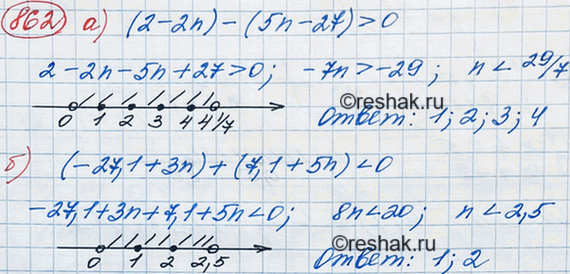 862 а) (2-2n)-(5n-27)>0
2-2n-5n+27>0; -7n>-29; n<29/7
©reshak.ru
0 1 2 3 4 4 1/7
Ответ: 1; 2; 3; 4
б) (-27,1+3n)+(7,1+5n)<0
-27,1+3n+7,1+5n<0; 8n<20; n<2,5
©reshak.ru
0 1 2 2,5
Ответ: 1; 2